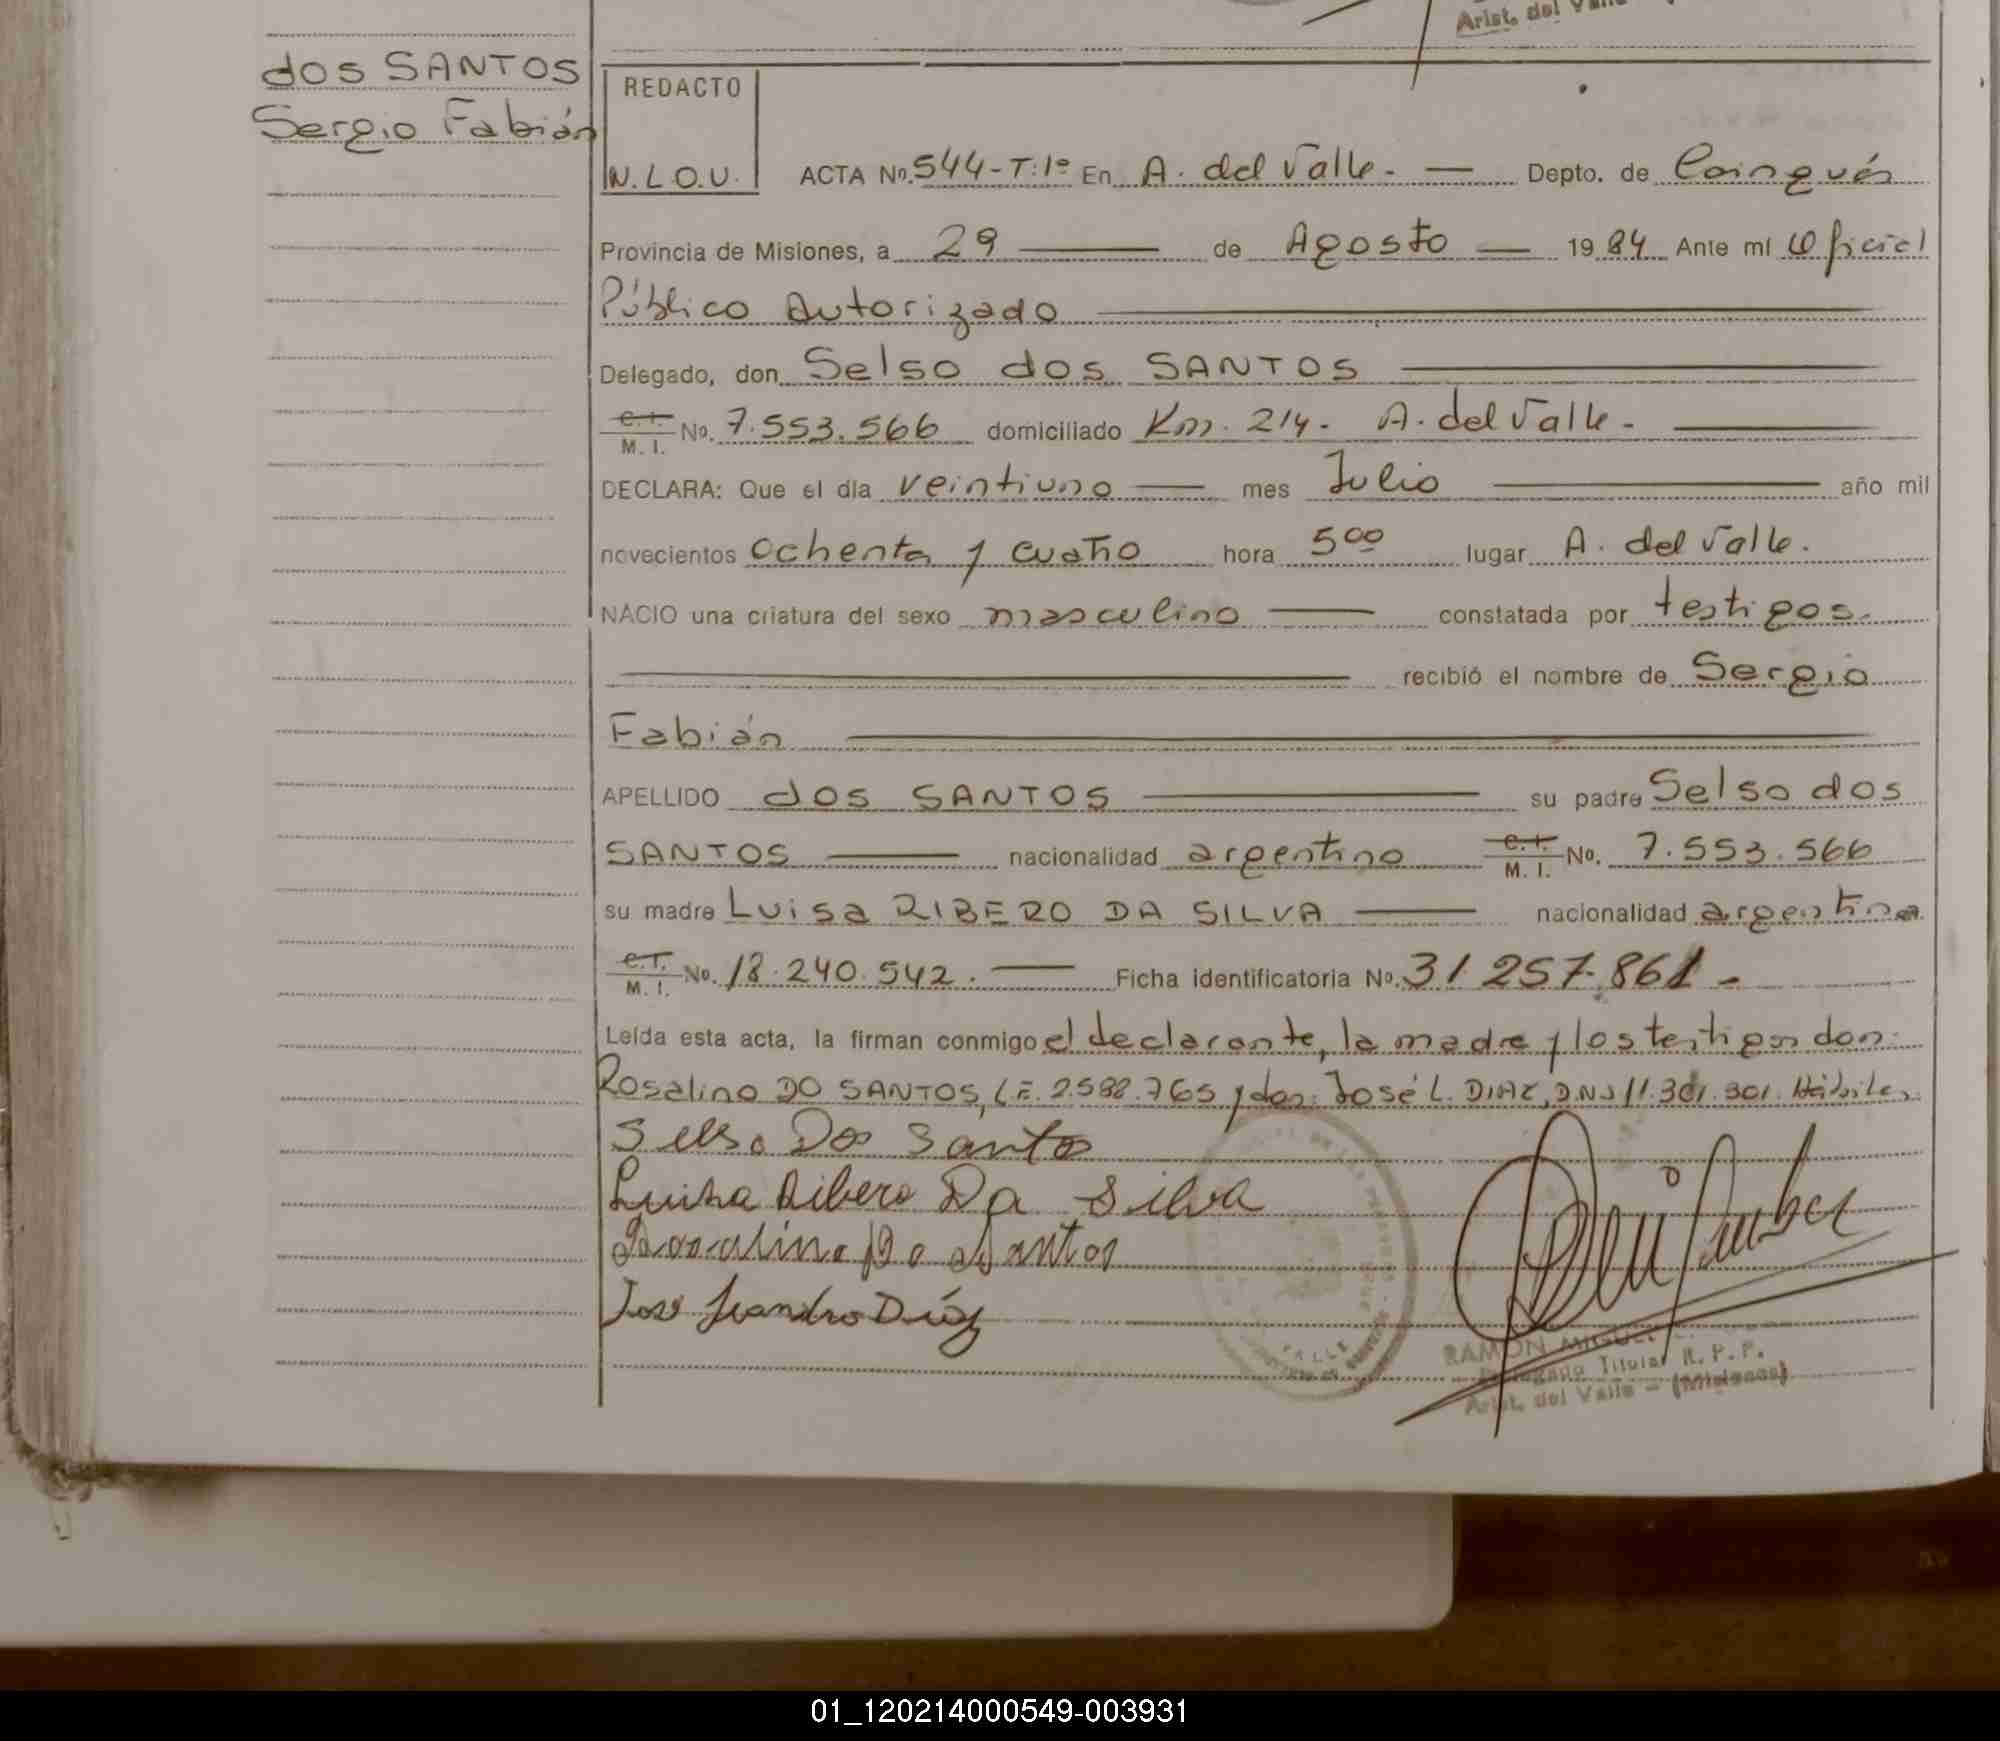 Arist. del Valle
dos SANTOS
Sergio Fabián
REDACTO
N.L.O.U.
ACTA No. 544-T:1º En A. del Valle. — Depto. de Cainguás
Provincia de Misiones, a 29 — de Agosto — 1984 Ante mí Oficial
Público Autorizado
Delegado, don Selso dos SANTOS
C.I. M. I. No. 7.553.566 domiciliado Km. 214. A. del Valle.
DECLARA: Que el día veintiuno — mes Julio — año mil
novecientos ochenta y cuatro hora 5ºº lugar A. del Valle.
NACIO una criatura del sexo masculino — constatada por testigos.
recibió el nombre de Sergio
Fabián
APELLIDO dos SANTOS — su padre Selso dos
SANTOS — nacionalidad argentino C.I. M. I. No. 7.553.566
su madre Luisa RIBERO DA SILVA — nacionalidad argentina
C.I. M. I. No. 18.240.542. — Ficha identificatoria No. 31 257.861 -
Leída esta acta, la firman conmigo el declarante, la madre y los testigos don:
Rosalino DO SANTOS, L.E. 2.582.765 y don: José L. DIAZ, D.N.I 11.301.301. Hábiles.
Selso Dos Santos
Luisa Ribero Da Silva
Rosalino Do Santos
José Leandro Díaz
VALLE
RAMON MIGUEL
Delegado Titular R. P. P.
Arist. del Valle - (Misiones)
01_120214000549-003931